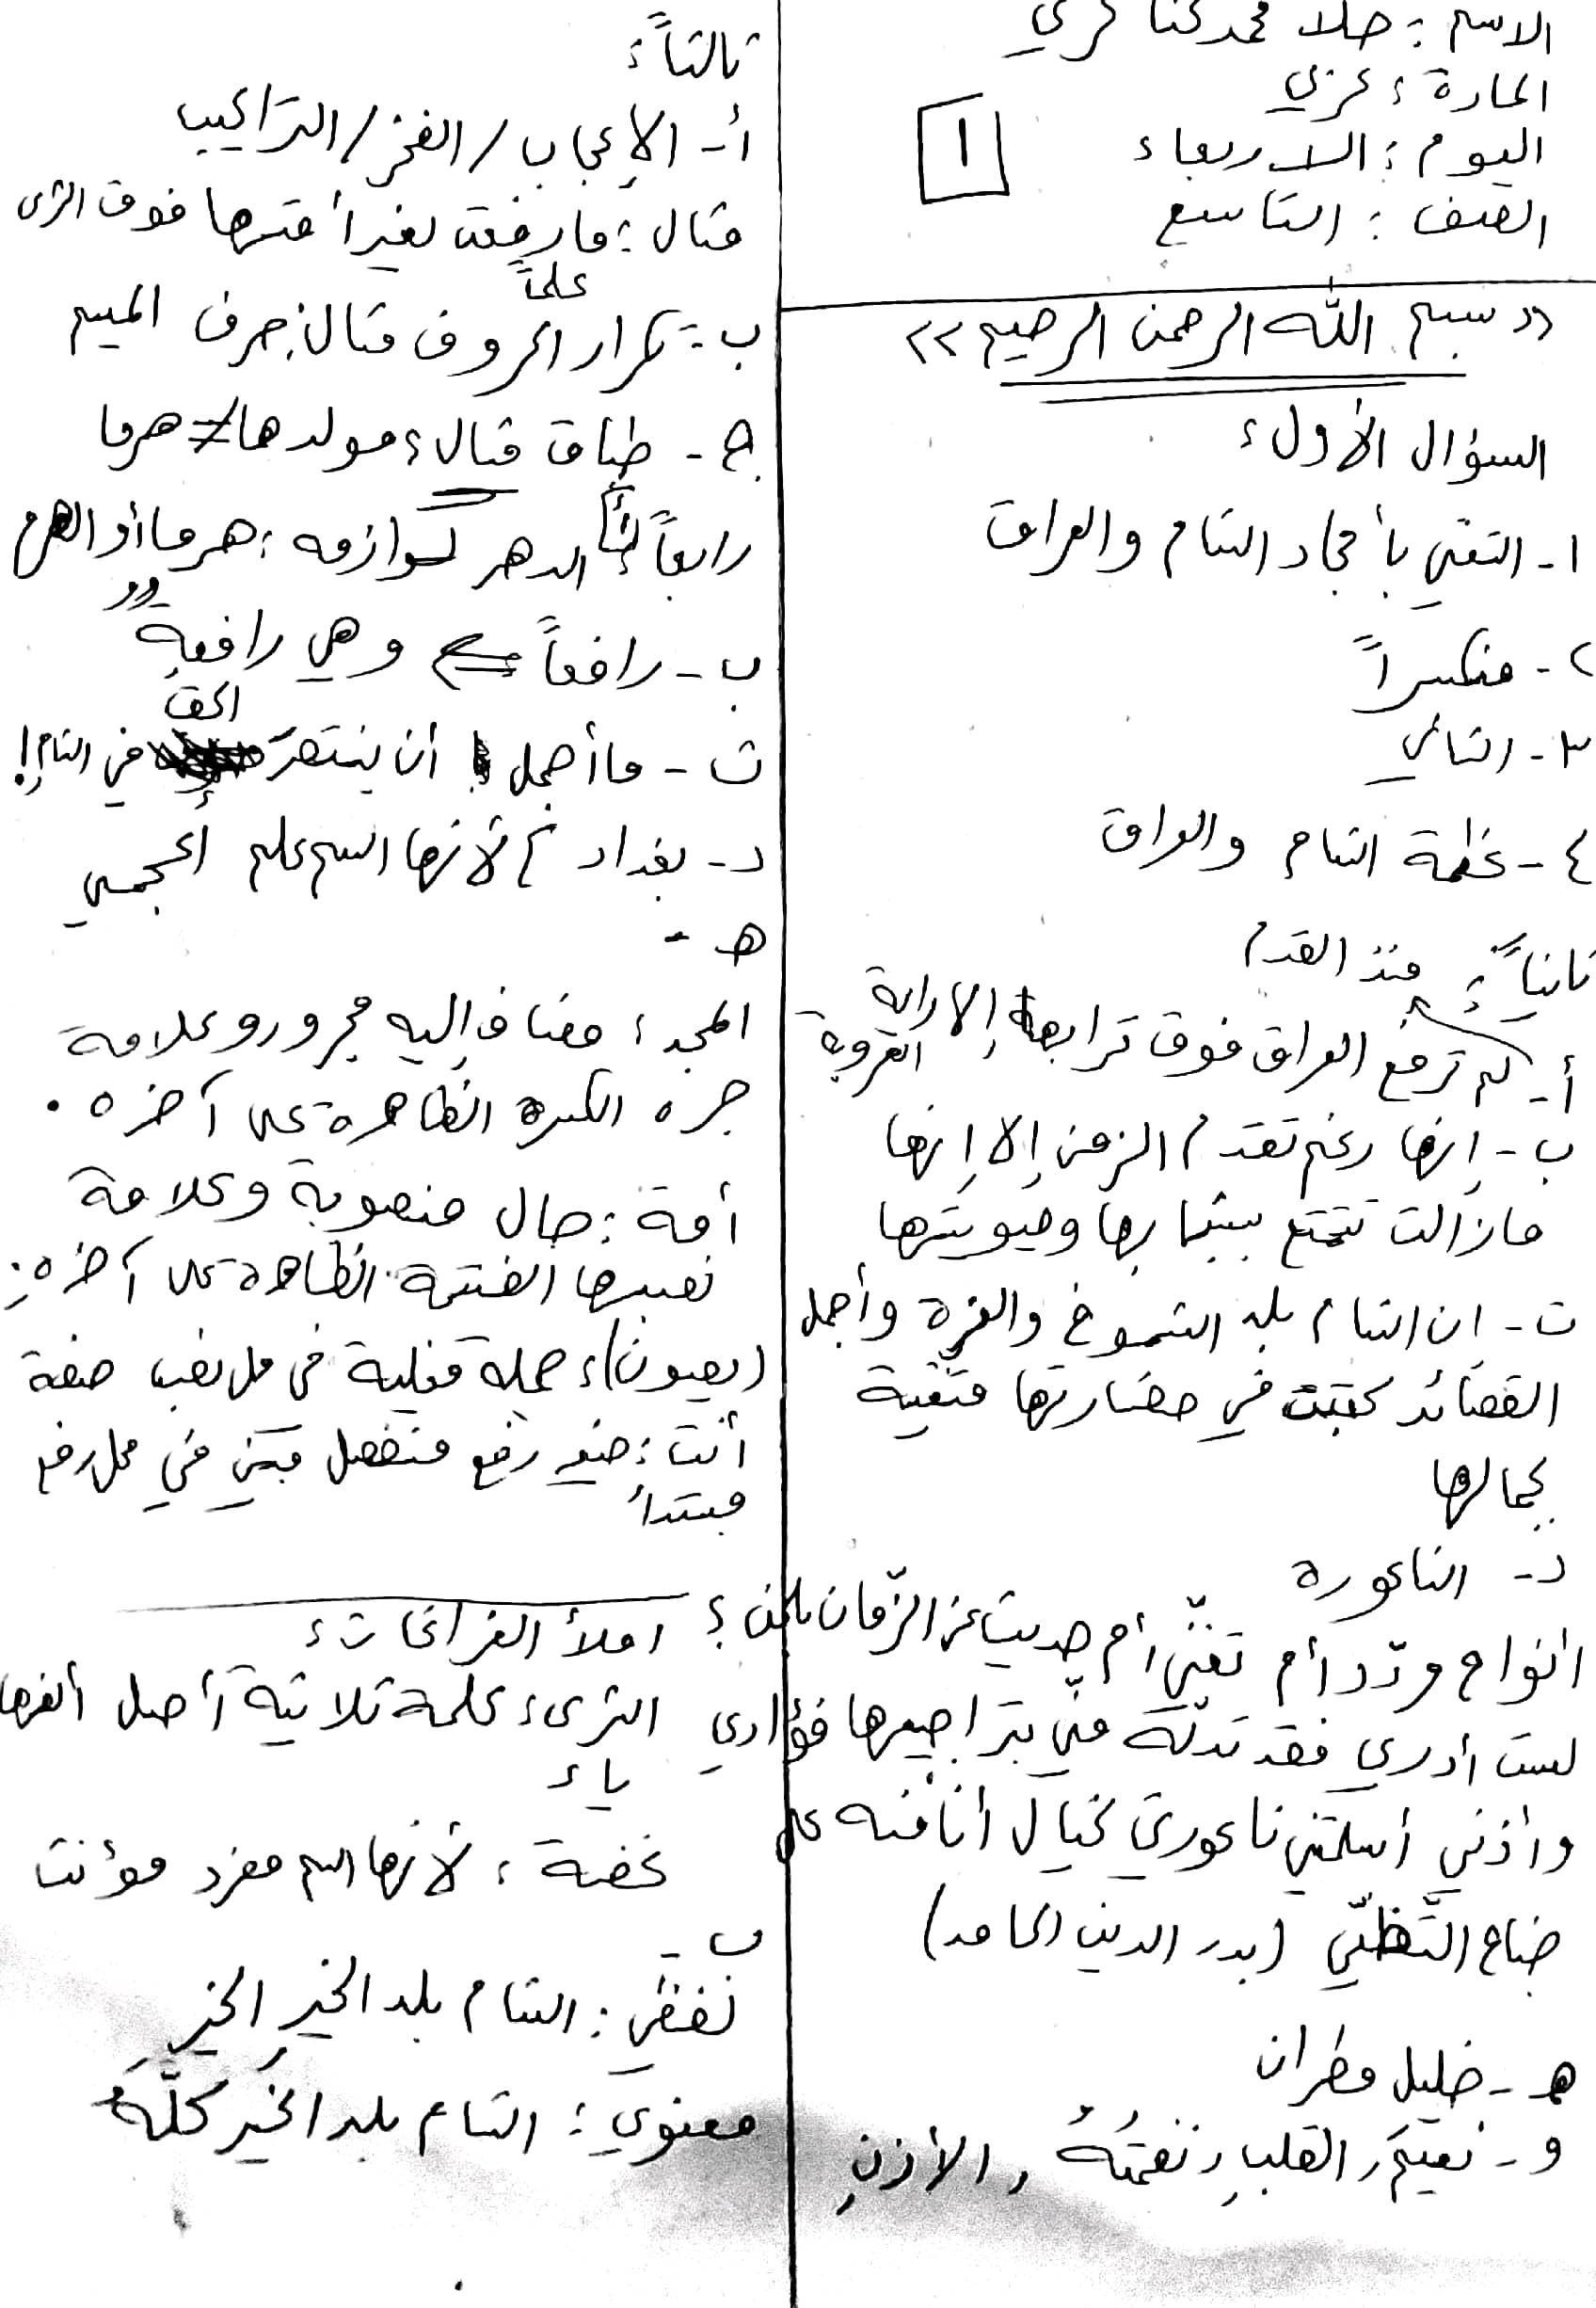 الاسم : حلا محمد
المادة : عربي
اليوم : الاربعاء
الصف : التاسع
١
" بسم الله الرحمن الرحيم "
السؤال الأول :
١- التغني بأمجاد الشام والعراق
٢- منكسراً
٣- الثاني
٤- عظمة الشام والعراق
ثانياً : منذ القدم
أ- لم ترفع العراق فوق ترابها إلا راية العروبة
ب- إنها رغم تقدم الزمن إلا إنها
مازالت تتمتع بشبابها وحيويتها
ت- ان الشام بلد الشموخ والعزة وأجمل
القصائد كتبت في حضارتها متغنية
بجمالها
د- الناعورة
أنواح مردد أم تغنّي أم حديث عن الزّمان بلحن ؟
لست أدري فقد تدلّه منّي بتراجيعها فؤادي
وأذني أسلمتني ناعورتي لخيال أنا منه على
جناح التّظنّي (بدر الدين الحامد)
هـ- خليل مطران
و- نعيمُ , القلبِ , نغمتُهُ , الأذنِ
ثالثاً :
أ- الإعجاب / الفخر / التراكيب
مثال : ما رفعت لغير أمتها فوق الثرى
علماً
ب- تكرار الحروف مثال : حرف الميم
ج- طباق مثال : مولدها ≠ هرما
رابعاً : أ- الدهر لوازمه : هرما أو الهرم
ب- رافعاً ⇐ وهي رافعة "
ت- ما أجمل أن ينتصرَ الحق في الشام !
د- بغداد ؛ لأنها اسم علم أعجمي
هـ -
المجد : مضاف إليه مجرور وعلامة
جره الكسرة الظاهرة على آخره .
أمة : حال منصوبة وعلامة
نصبها الفتحة الظاهرة على آخره .
(يعبون) : جملة فعلية في محل نصب صفة
أنت : ضمير رفع منفصل مبني في محل رفع
مبتدأ
املأ الفراغات :
الثرى : كلمة ثلاثية أصل ألفها
ياء
: لأنها اسم مفرد مؤنث
ب -
لفظي : الشام بلد الخيرِ الخيرِ
معنوي : الشام بلد الخيرِ كلّهِ